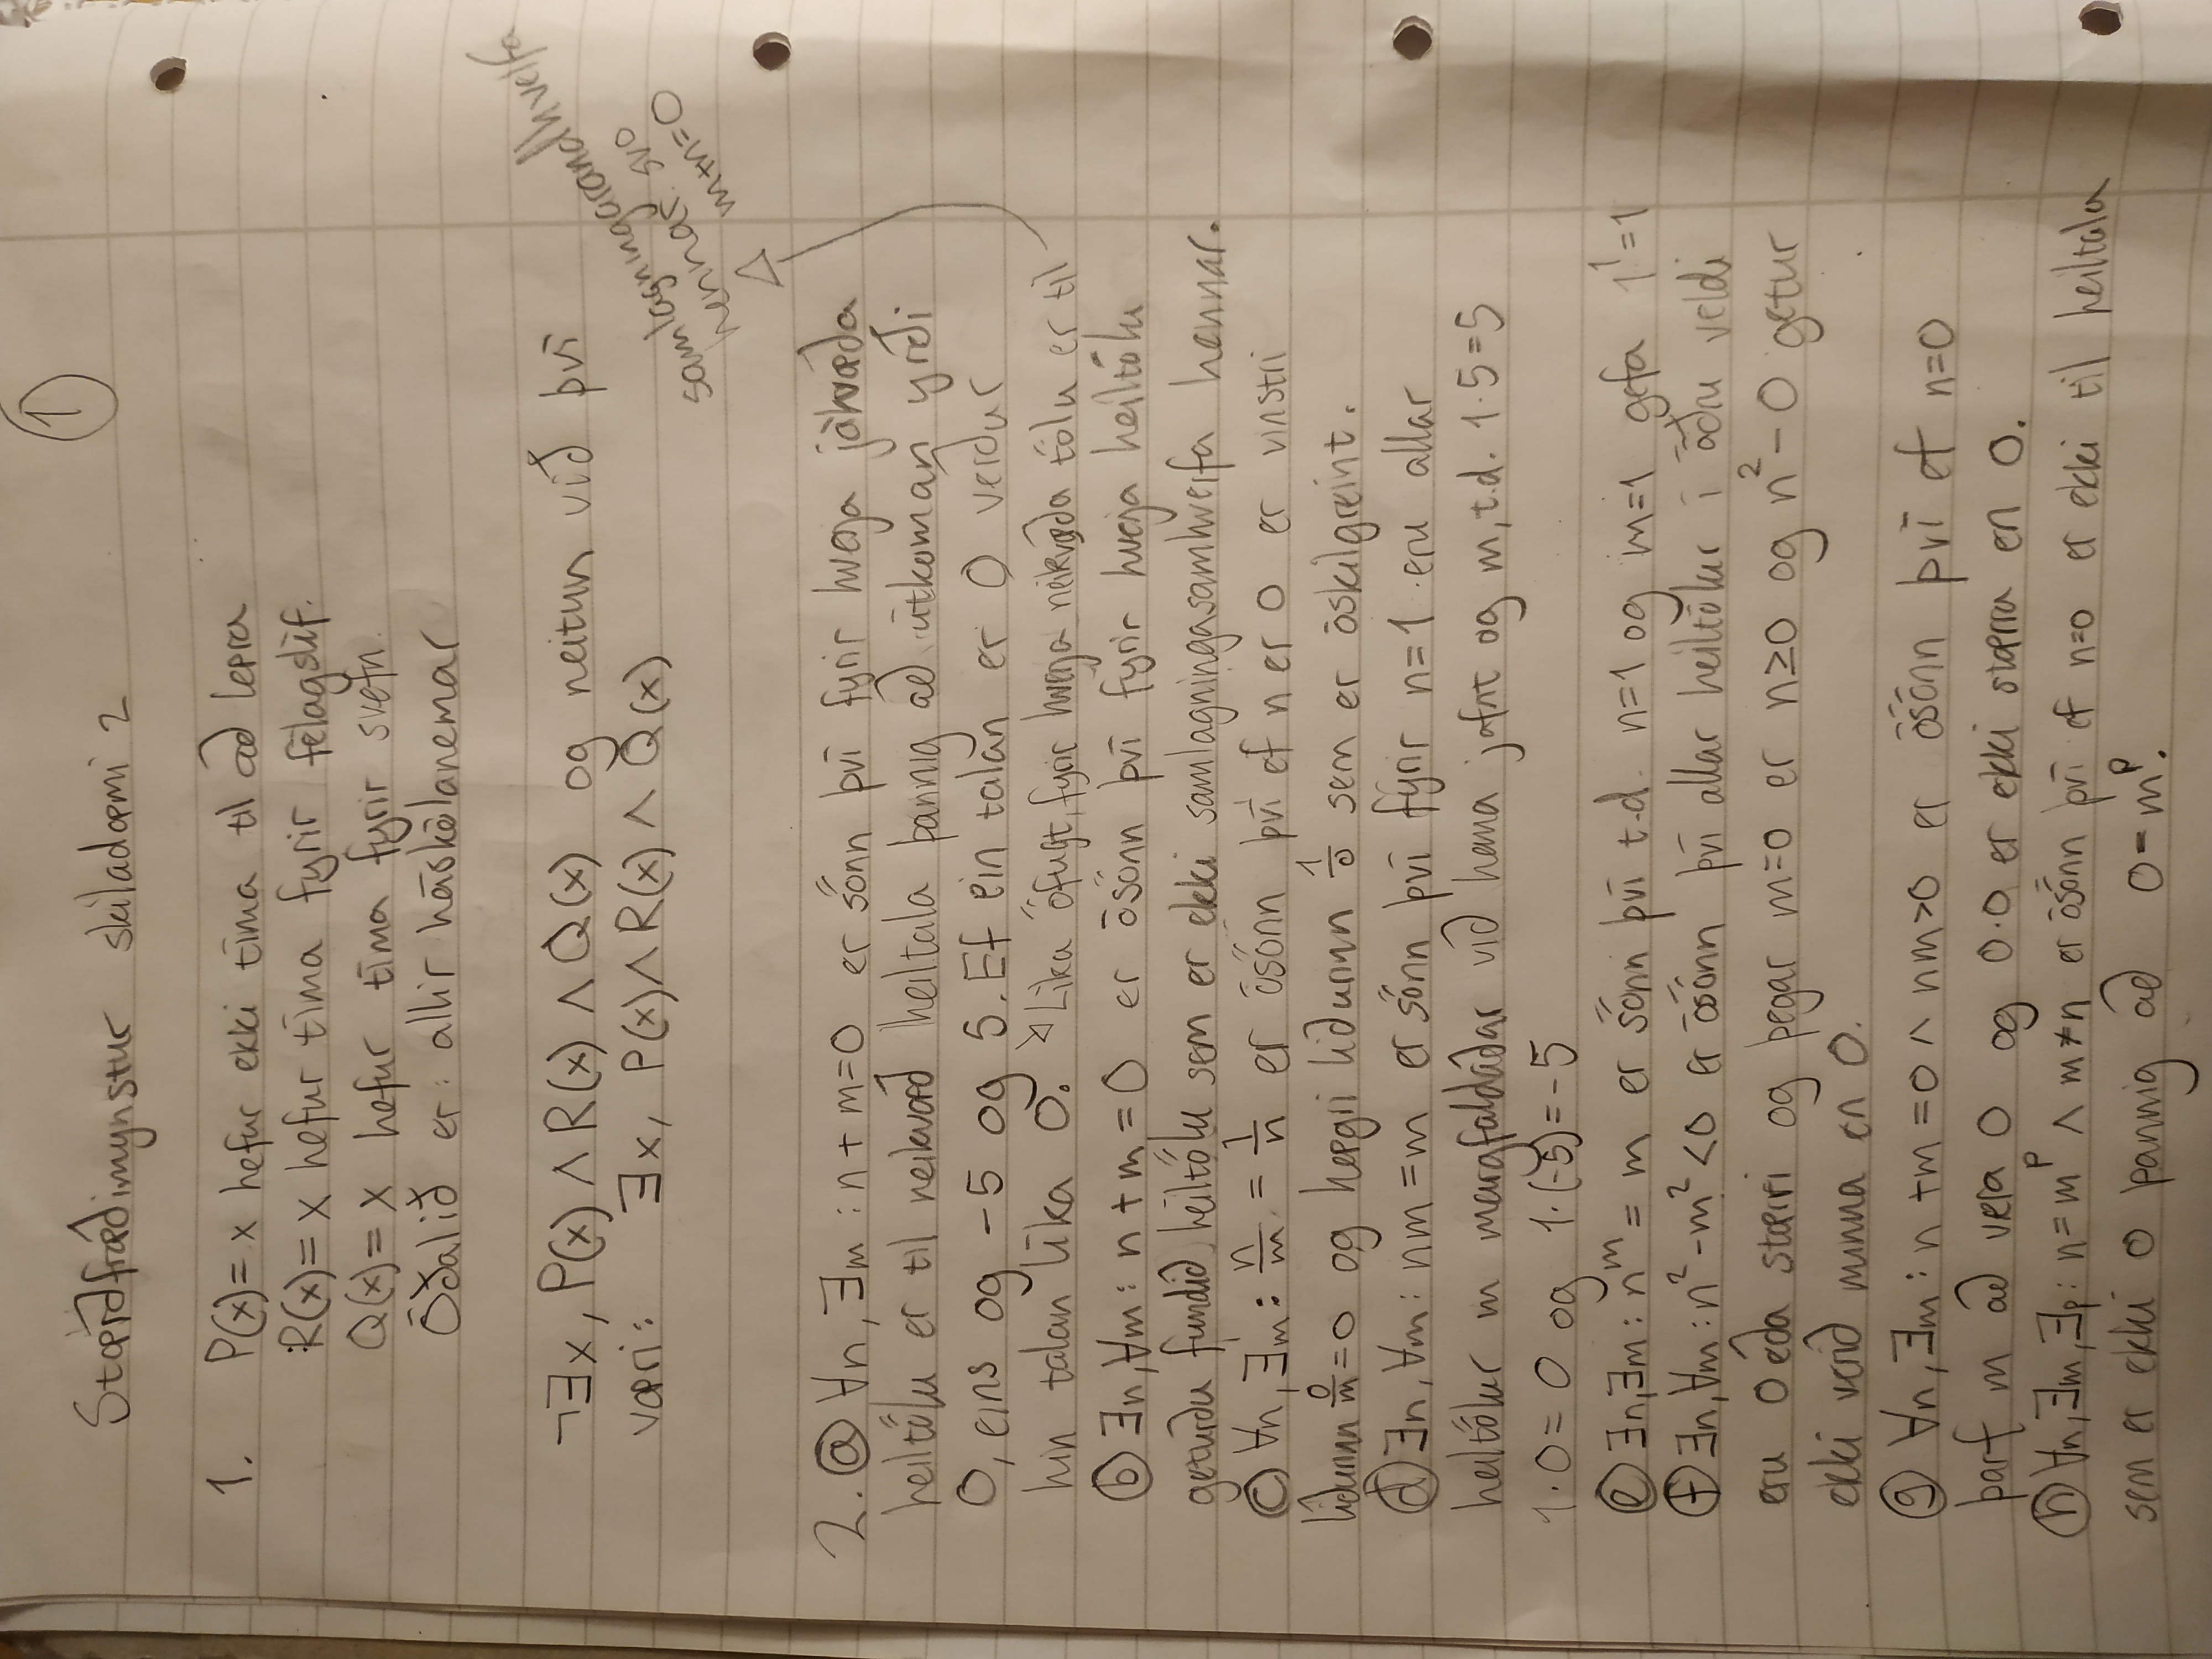 ①
Stærðfræðimynstur skiladæmi 2
1. P(x)= x hefur ekki tíma til að læra
R(x)= x hefur tíma fyrir félagslíf.
Q(x)= x hefur tíma fyrir svefn.
Óðalið er: allir háskólanemar
¬∃x, P(x) ∧ R(x) ∧ Q(x) og neitun við því
væri: ∃x, P(x) ∧ R(x) ∧ Q(x)
samlagningarandhverfa
hennar. svo
m+n=0
2. ⓐ ∀n, ∃m : n + m=0 er sönn því fyrir hverja jákvæða
heiltölu er til neikvæð heiltala þannig að útkoman yrði
0, eins og -5 og 5. Ef ein talan er 0 verður
hin talan líka 0. ↘ Líka öfugt, fyrir hverja neikvæða tölu er til
ⓑ ∃n, ∀m : n + m = 0 er ósönn því fyrir hverja heiltölu
geturðu fundið heiltölu sem er ekki samlagningasamhverfa hennar.
ⓒ ∀n, ∃m : n/m = 1/n er ósönn því ef n er 0 er vinstri
liðurinn 0/m = 0 og hægri liðurinn 1/0 sem er óskilgreint.
ⓓ ∃n, ∀m : nm = m er sönn því fyrir n=1 eru allar
heiltölur m margfaldaðar við hana jafnt og m, t.d. 1·5=5
1·0=0 og 1·(-5)=-5
ⓔ ∃n, ∃m : n^m = m er sönn því t.d. n=1 og m=1 gefa 1^1=1
ⓕ ∃n, ∀m : n²-m² <0 er ósönn því allar heiltölur í öðru veldi
eru 0 eða stærri og þegar m=0 er n≥0 og n²-0 getur
ekki verið minna en 0.
ⓖ ∀n, ∃m : n +m =0 ∧ nm>0 er ósönn því ef n=0
þarf m að vera 0 og 0·0 er ekki stærra en 0.
ⓗ ∀n, ∃m, ∃p : n=m^p ∧ m≠n er ósönn því ef n=0 er ekki til heiltala
sem er ekki 0 þannig að 0=m^p.